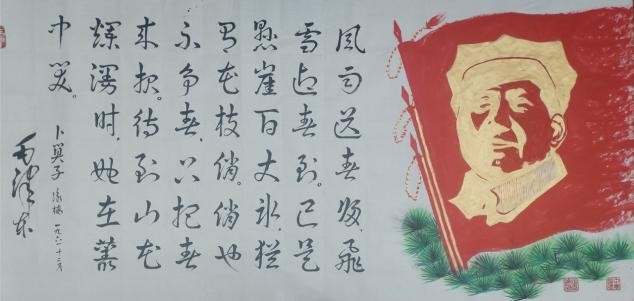 風雨送春归,飛
雪迎春到。已是
懸崖百丈冰,猶
有花枝俏。俏也
不争春,只把春
来报。待到山花
爛漫时,她在叢
中笑。
卜算子 咏梅 一九六一十二月
毛泽东